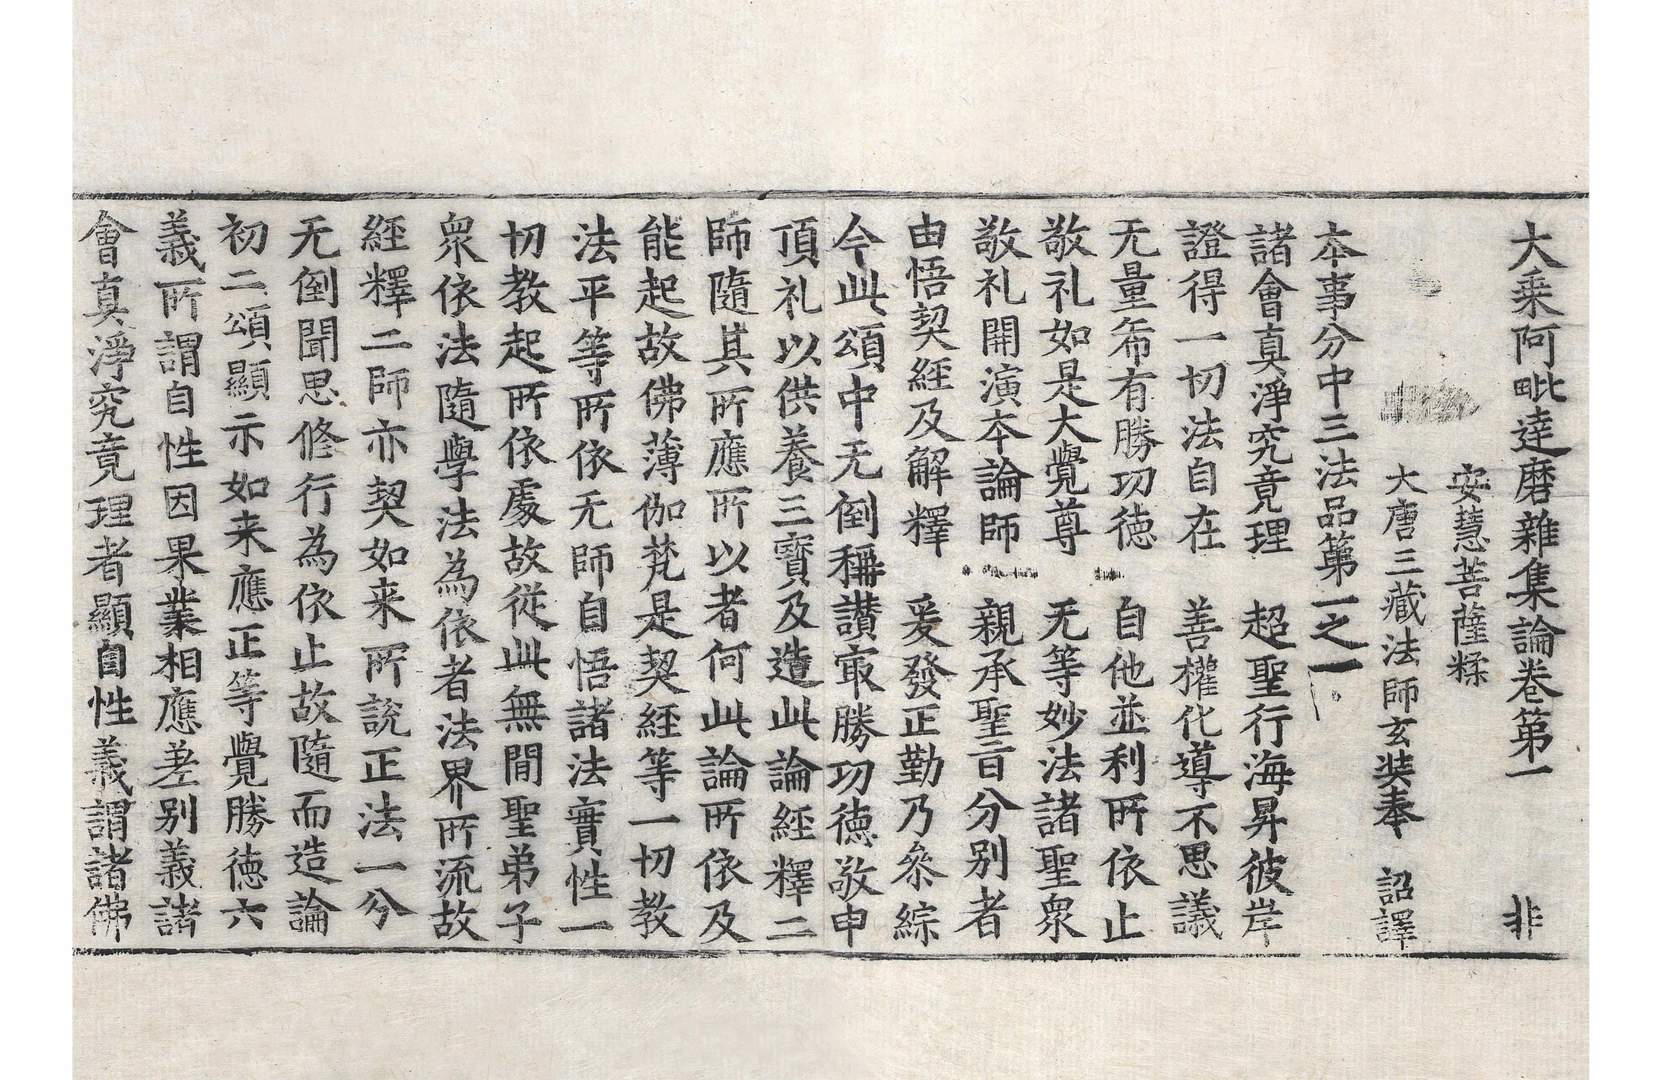 大乘阿毗達磨雜集論卷第一　非
安慧菩薩糅
大唐三藏法師玄奘奉　詔譯
本事分中三法品第一之一
諸會真淨究竟理　超聖行海昇彼岸
證得一切法自在　善權化導不思議
无量希有勝功德　自他並利所依止
敬礼如是大覺尊　无等妙法諸聖衆
敬礼開演本論師　親承聖旨分別者
由悟契經及解釋　爰發正勤乃叅綜
今此頌中无倒稱讃㝡勝功德敬申
頂礼以供養三寶及造此論經釋二
師隨其所應所以者何此論所依及
能起故佛薄伽梵是契經等一切教
法平等所依无師自悟諸法實性一
切教起所依處故從此無間聖弟子
衆依法隨學法為依者法界所流故
經釋二師亦契如来所説正法一分
无倒聞思修行為依止故隨而造論
初二頌顯示如来應正等覺勝德六
義所謂自性因果業相應差別義諸
會真淨究竟理者顯自性義謂諸佛